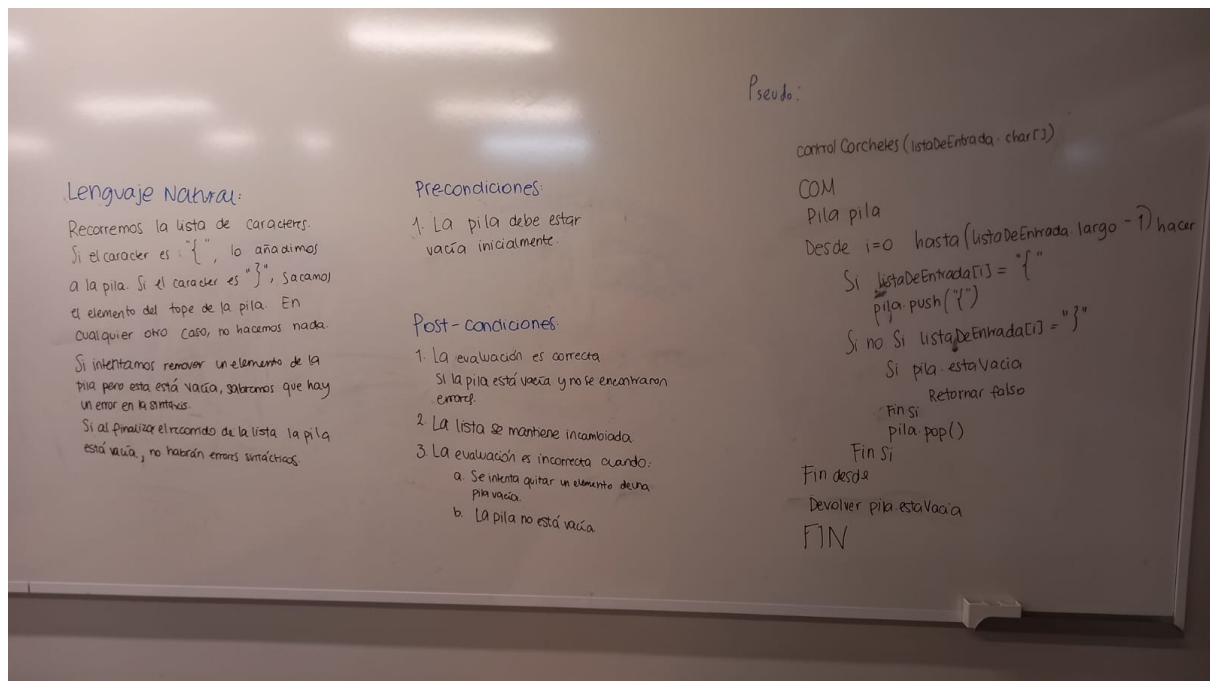 Lenguaje Natural:
Recorremos la lista de caracteres.
Si el caracter es "{", lo añadimos
a la pila. Si el caracter es "}", sacamos
el elemento del tope de la pila. En
cualquier otro caso, no hacemos nada.
Si intentamos remover un elemento de la
pila pero esta está vacía, sabremos que hay
un error en la sintaxis.
Si al finalizar el recorrido de la lista la pila
está vacía, no habrán errores sintácticos.
Precondiciones:
1. La pila debe estar
vacía inicialmente.
Post-condiciones:
1. La evaluación es correcta
si la pila está vacía y no se encontraron
errores.
2. La lista se mantiene incambiada
3. La evaluación es incorrecta cuando:
a. Se intenta quitar un elemento de una
pila vacía.
b. La pila no está vacía
Pseudo:
controlCorcheles (listaDeEntrada. char[])
COM
Pila pila
Desde i=0 hasta (listaDeEntrada.largo - 1) hacer
Si listaDeEntrada[i] = "{"
pila.push("{")
Si no Si listaDeEntrada[i] = "}"
Si pila.estaVacia
Retornar falso
Fin si
pila.pop()
Fin Si
Fin desde
Devolver pila.estaVacia
FIN